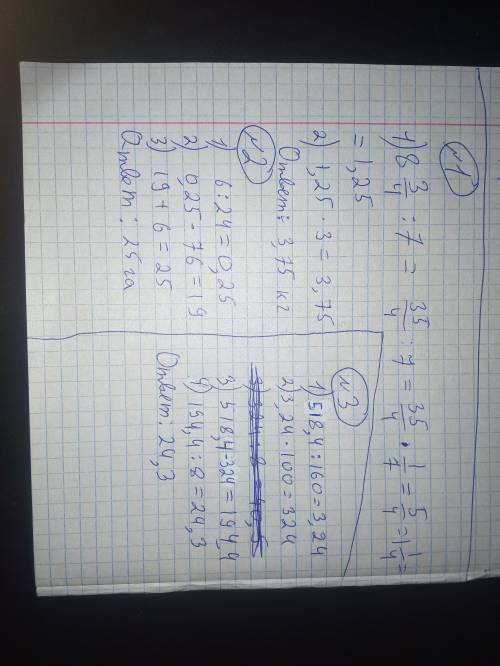 №1
1) 8 3/4 : 7 = 35/4 : 7 = 35/4 · 1/7 = 5/4 = 1 1/4 =
= 1,25
2) 1,25 · 3 = 3,75
Ответ: 3,75 кг
№2
1) 6 : 24 = 0,25
2) 0,25 - 76 = 19
3) 19 + 6 = 25
Ответ: 25 га
№3
1) 518,4 : 160 = 3,24
2) 3,24 · 100 = 324
3) 518,4 - 324 = 194,4
4) 194,4 : 8 = 24,3
Ответ: 24,3